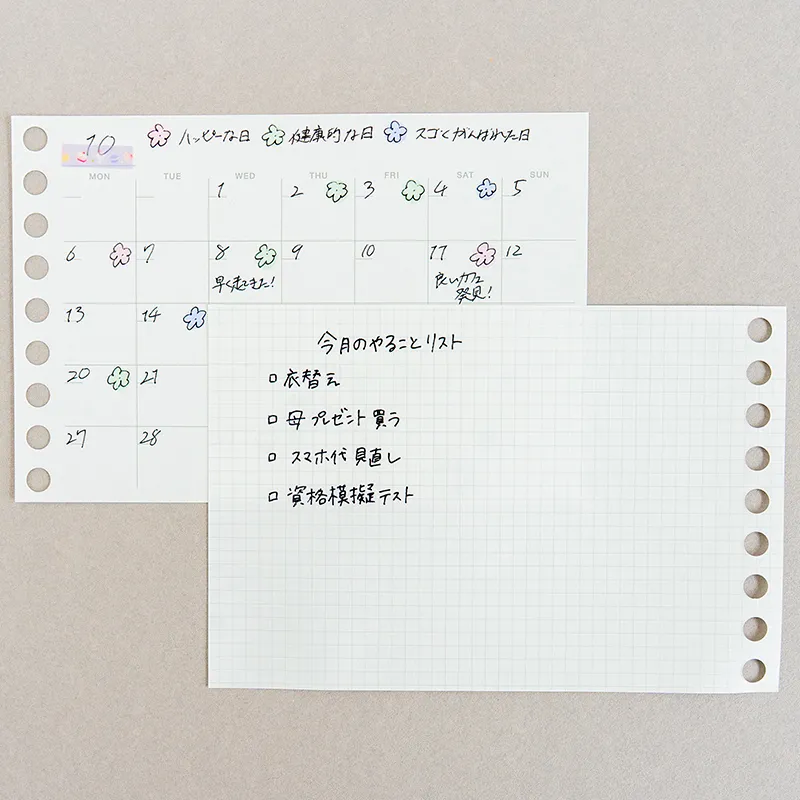 10 ハッピーな日 健康的な日 スゴくがんばれた日
MON TUE WED THU FRI SAT SUN
1 2 3 4 5
6 7 8 9 10 11 12
早く起きた! 良いカフェ
発見!
13 14
20 21
27 28
今月のやることリスト
衣替え
母プレゼント買う
スマホ代見直し
資格模擬テスト